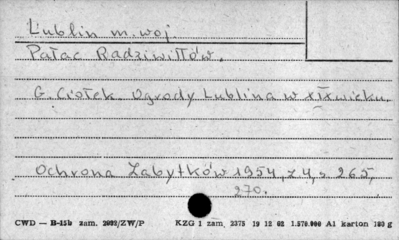 Lublin m. woj.
Pałac Radziwiłłów.
G. Ciołek. Ogrody Lublina w XIX wieku.
Ochrona Zabytków 1954, z 4, s 265,
270.
CWD — B-15b zam. 2022/ZW/P KZG 1 zam 2375 19 12 62 1.570.000 A1 karton 180 g